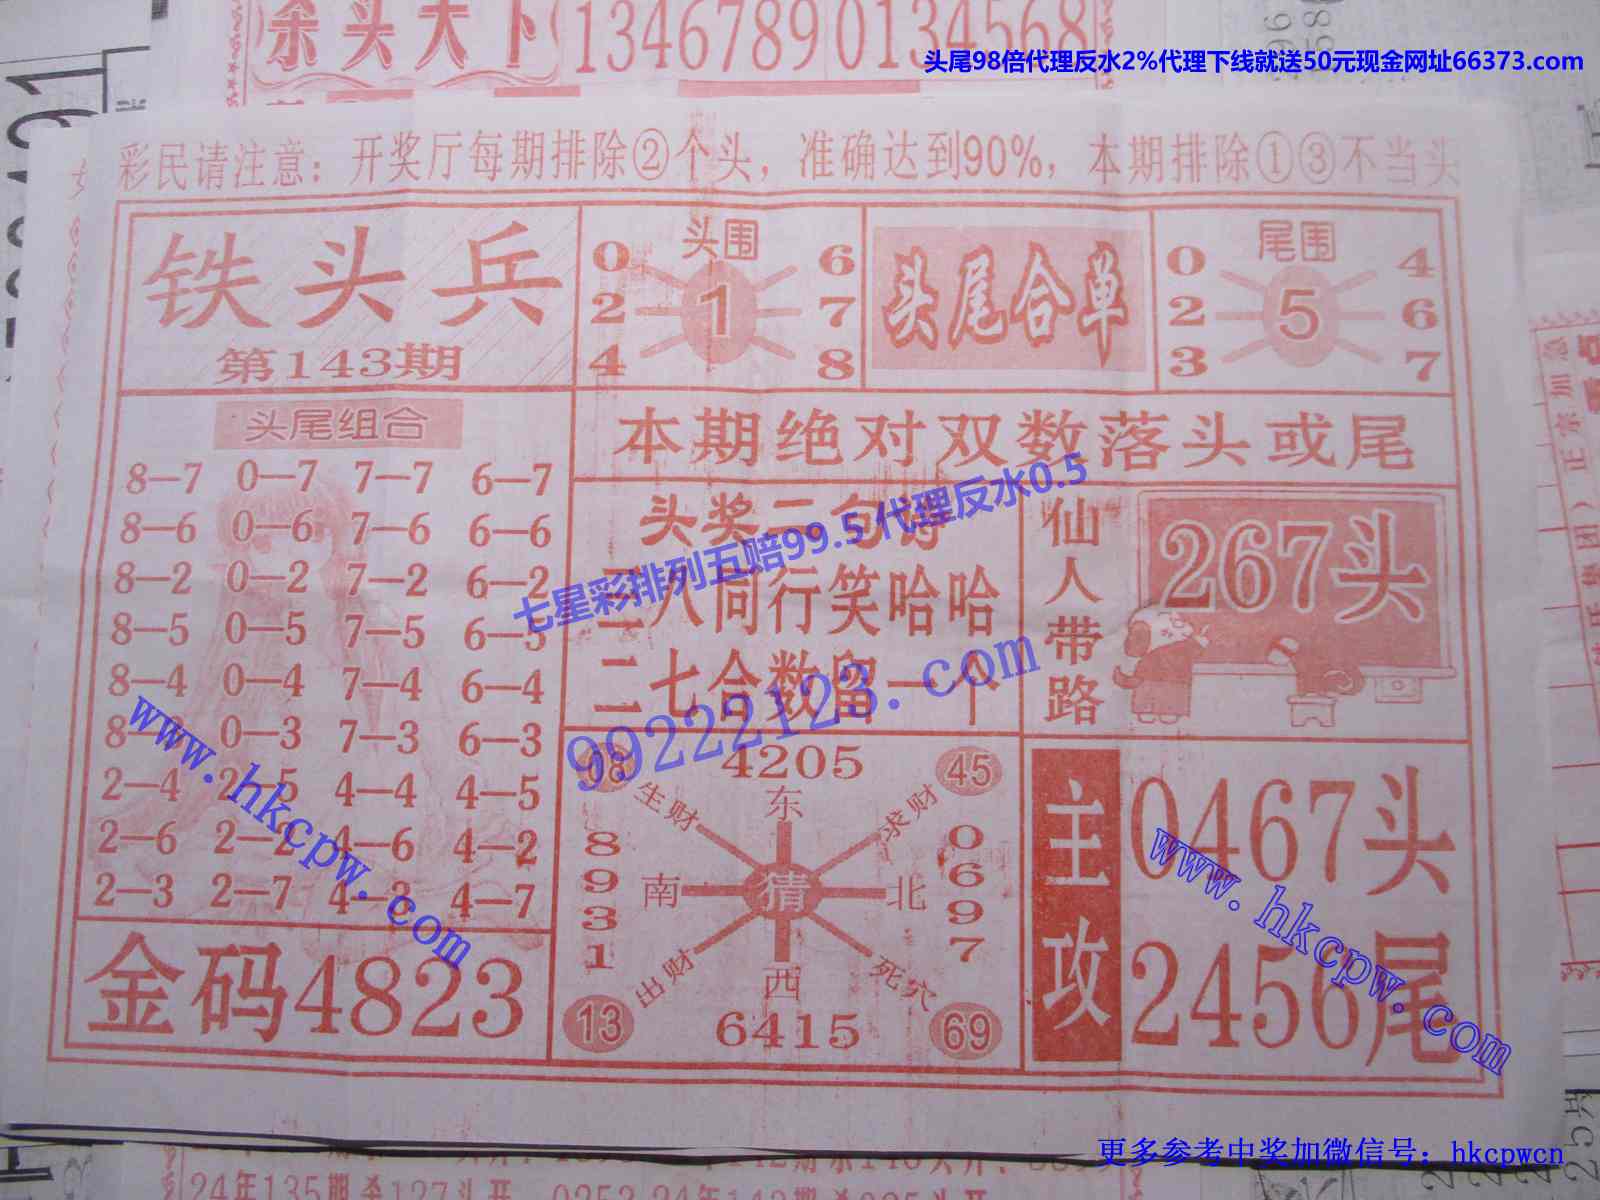 杀头天下 1346789 0134568
头尾98倍代理反水2%代理下线就送50元现金网址66373.com
彩民请注意：开奖厅每期排除②个头，准确达到90%，本期排除①③不当头
铁头兵
第143期
头围
0 6
2 1 7
4 8
头尾合单
尾围
0 4
2 5 6
3 7
头尾组合
8—7 0—7 7—7 6—7
8—6 0—6 7—6 6—6
8—2 0—2 7—2 6—2
8—5 0—5 7—5 6—5
8—4 0—4 7—4 6—4
0—3 7—3 6—3
2—4 2—5 4—4 4—5
2—6 2—2 4—6 4—2
2—3 2—7 4—3 4—7
金码4823
本期绝对双数落头或尾
头奖二句诗
八同行笑哈哈
二七合数留一个
仙人带路
267头
08 4205 45
生财 东 求财
8931 南 猜 北 0697
出财 西 死穴
13 6415 69
主攻
0467头
2456尾
七星彩排列五赔99.5 代理反水0.5
99222123.com
www.hkcpw.com
www.hkcpw.com
更多参考中奖加微信号：hkcpwcn